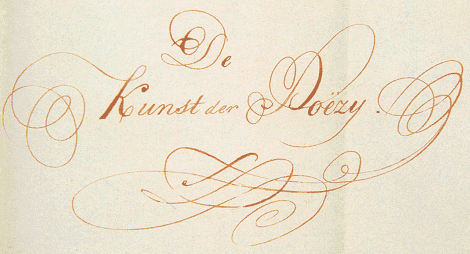 De
Kunst der Poëzy.